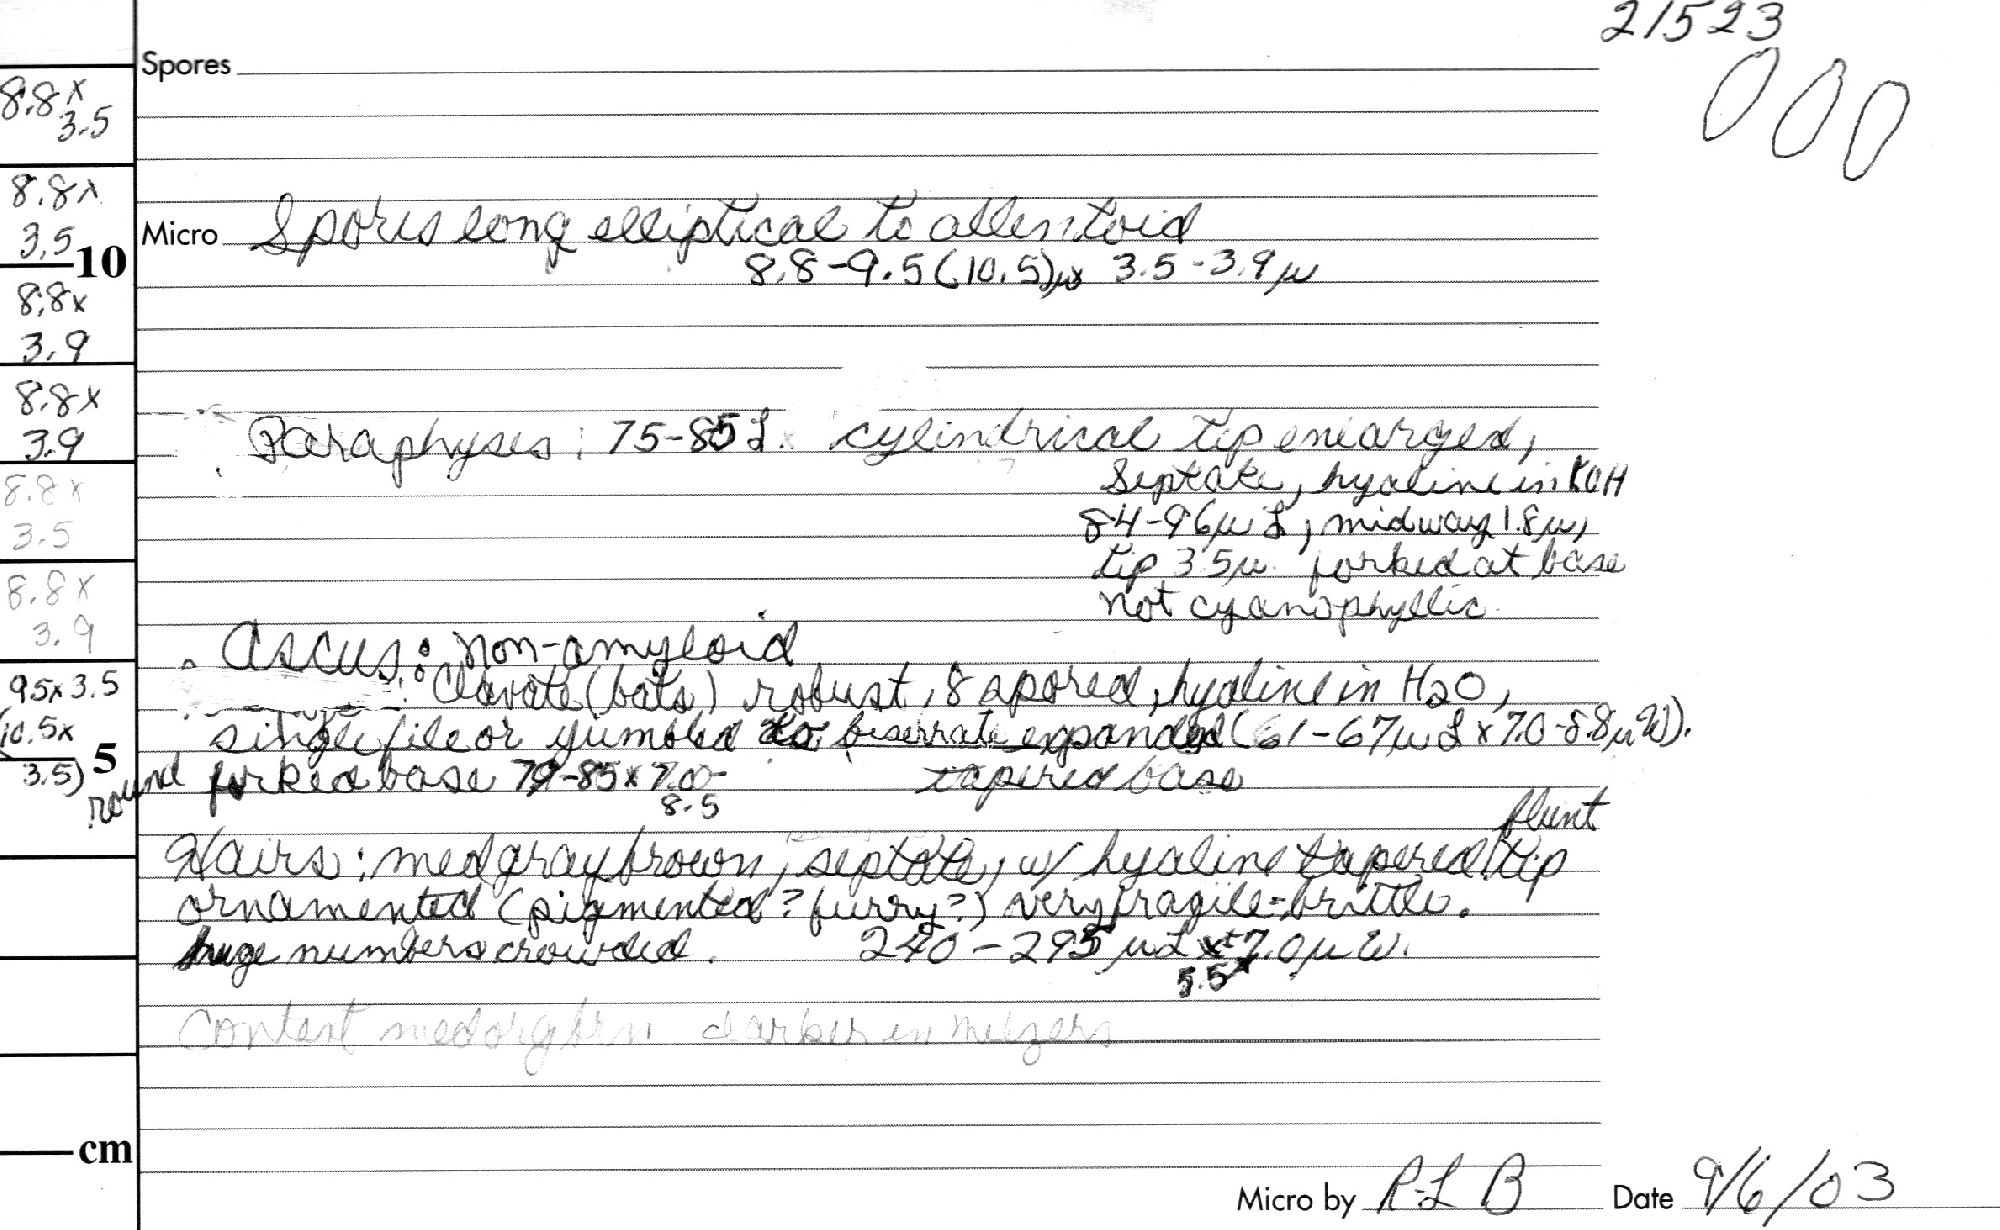 21523
Spores
8.8 x
3.5
8.8 x
3.5
10
8.8 x
3.9
8.8 x
3.9
8.8 x
3.5
8.8 x
3.9
9.5 x 3.5
(10.5 x
3.5)
5
cm
Micro Spores long elliptical to allentoid
8.8-9.5(10.5)µ x 3.5-3.9µ
Paraphyses: 75-85 L x cylindrical tip enlarged,
Septate, hyaline in KOH
84-96µ L, midway 1.8µ,
tip 3.5µ forked at base
not cyanophyllic.
Ascus: non-amyloid
: Clavate (bats) robust, 8 spored, hyaline in H2O,
single file or jumbled to biserrate expanded (61-67µ L x 7.0-8.8µ W).
round forked base 79-85 x 7.0- tapered base
8.5
blunt
Hairs: med gray brown, septate, w/ hyaline tapered tip
ornamented (pigmented? furry?) very fragile-brittle.
huge numbers crowded. 240-295 µ L x ± 7.0µ W.
5.5
Content med org brn darker in melzers
Micro by RLB Date 9/6/03